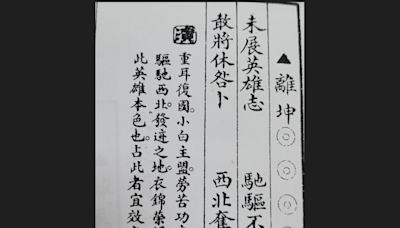 ▲離坤◎◎◎◎
未展英雄志 馳驅不
敢將休咎卜 西北奪
重耳復國。小白主盟。勞苦功
驅馳西北。發迹之地。衣錦榮
此英雄本色也。占此者宜效